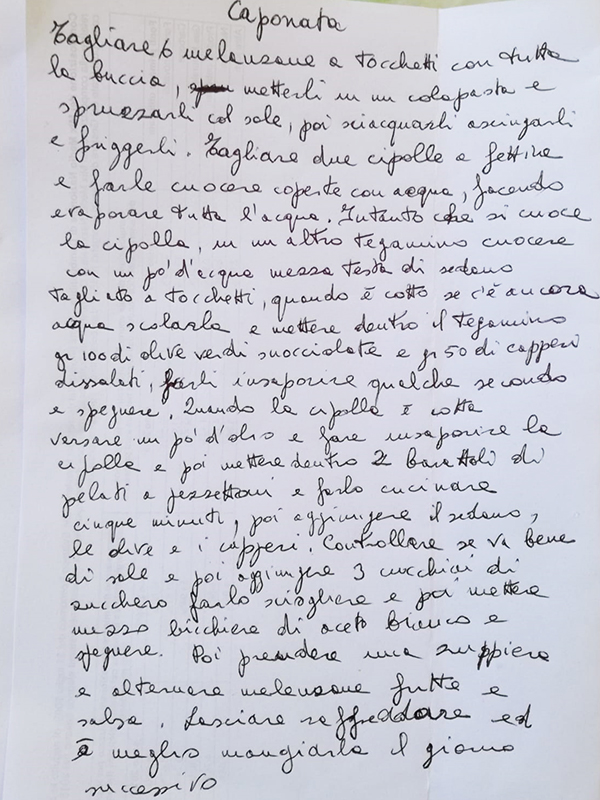 Caponata
Tagliare 6 melanzane a tocchetti con tutta
la buccia, metterli in un colapasta e
spruzzarli col sale, poi sciacquarli asciugarli
e friggerli. Tagliare due cipolle a fettine
e farle cuocere coperte con acqua, facendo
evaporare tutta l'acqua. Intanto che si cuoce
la cipolla, in un altro tegamino cuocere
con un po' d'acqua mezza testa di sedano
tagliato a tocchetti, quando è cotto se c'è ancora
acqua scolarla e mettere dentro il tegamino
gr 100 di olive verdi snocciolate e gr 50 di capperi
dissalati, farli insaporire qualche secondo
e spegnere. Quando la cipolla è cotta
versare un po' d'olio e fare insaporire la
cipolla e poi mettere dentro 2 barattoli di
pelati a pezzettoni e farlo cucinare
cinque minuti, poi aggiungere il sedano,
le olive e i capperi. Controllare se va bene
di sale e poi aggiungere 3 cucchiai di
zucchero farlo sciogliere e poi mettere
mezzo bicchiere di aceto bianco e
spegnere. Poi prendere una zuppiera
e alternare melanzane fritte e
salsa. Lasciare raffreddare ed
è meglio mangiarla il giorno
successivo